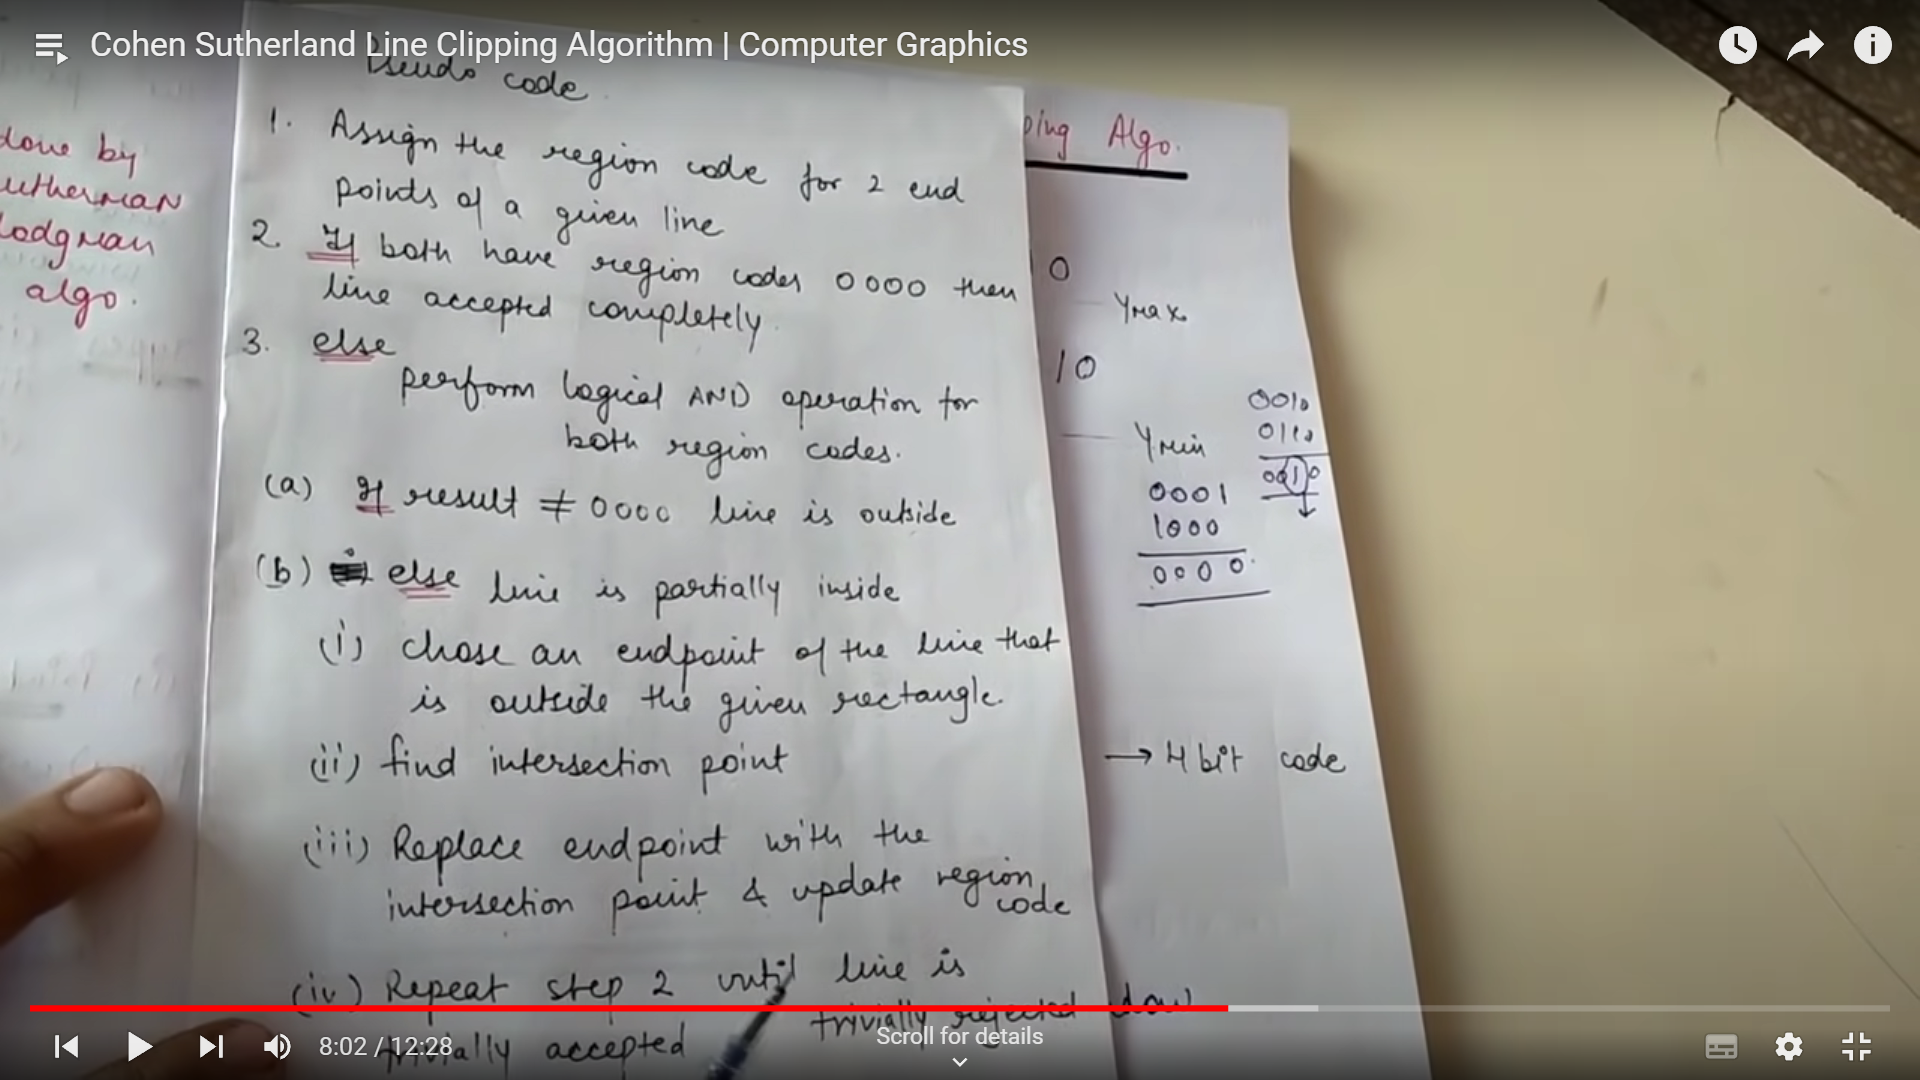 Cohen Sutherland Line Clipping Algorithm | Computer Graphics
Pseudo code
1. Assign the region code for 2 end
points of a given line
2. If both have region codes 0000 then
line accepted completely.
3. else
perform logical AND operation for
both region codes.
(a) If result ≠ 0000 line is outside
(b) else line is partially inside
(i) chose an endpoint of the line that
is outside the given rectangle.
(ii) find intersection point
(iii) Replace endpoint with the
intersection point & update region
code
(iv) Repeat step 2 until line is
trivially accepted trivially rejected
done by
algo.
Algo.
10
Ymax
10
Ymin
0001
1000
0000
0010
0110
0010
→ 4 bit code
8:02 / 12:28
Scroll for details